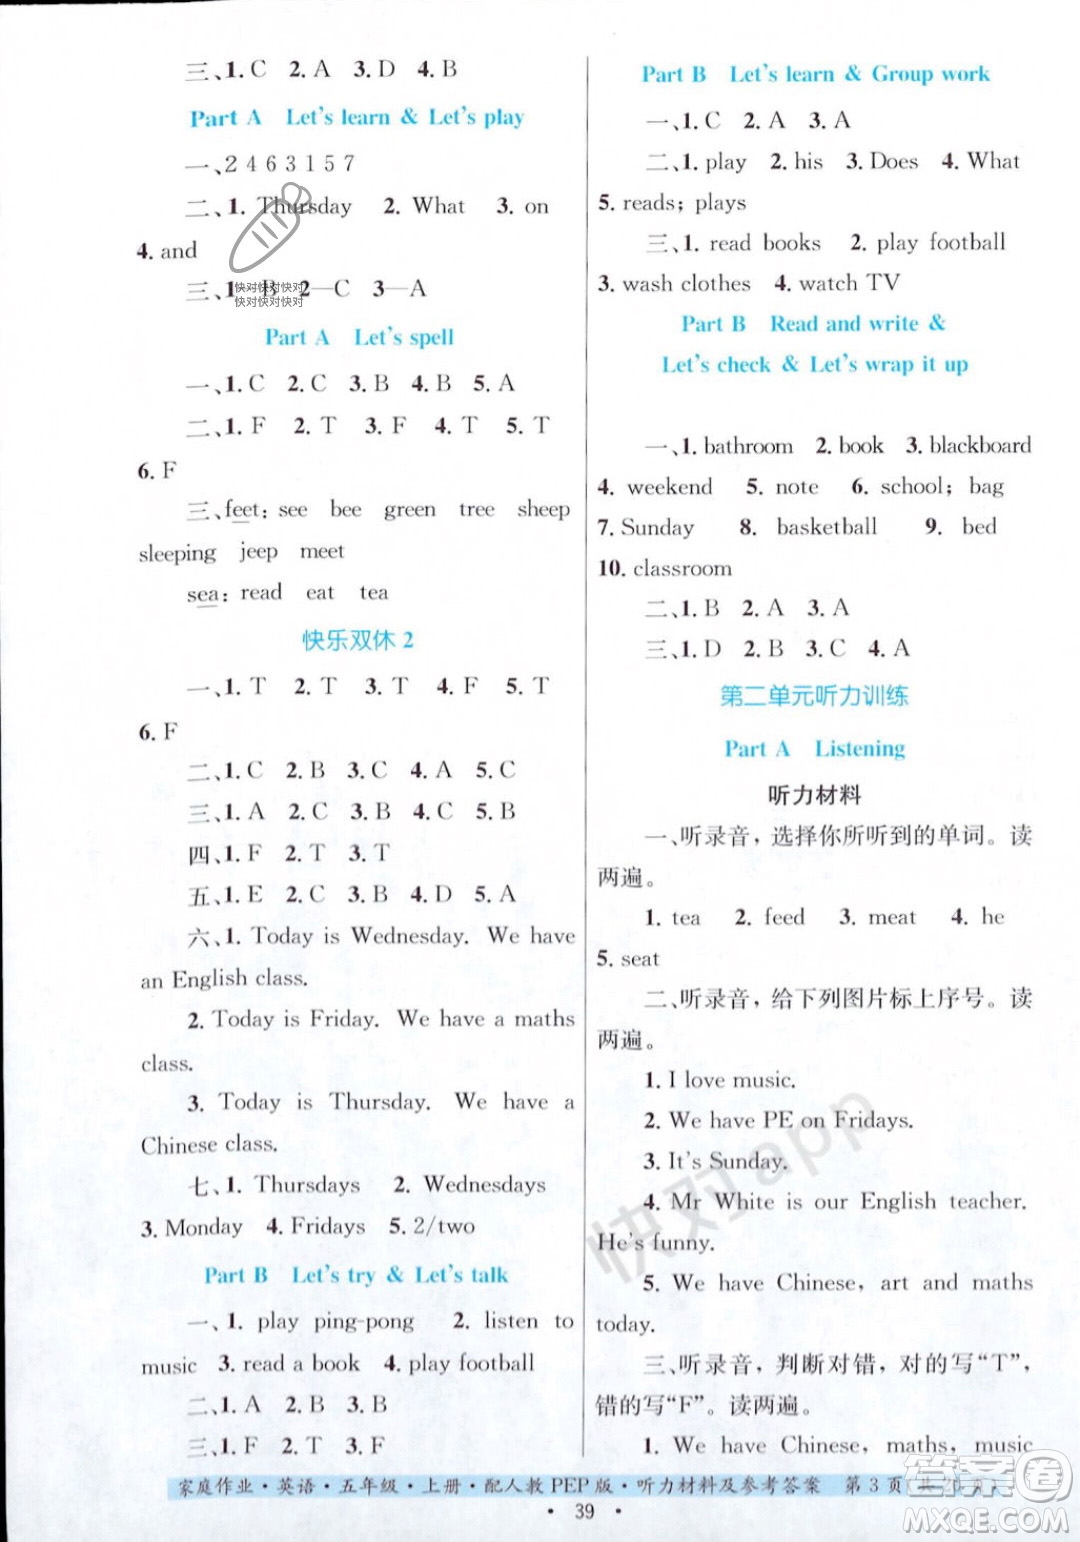 三、1. C 2. A 3. D 4. B
Part A Let's learn & Let's play
一、2 4 6 3 1 5 7
二、1. Thursday 2. What 3. on
4. and
三、1—B 2—C 3—A
快对快对快对
快对快对快对
Part A Let's spell
一、1. C 2. C 3. B 4. B 5. A
二、1. F 2. T 3. F 4. T 5. T
6. F
三、feet: see bee green tree sheep
sleeping jeep meet
sea: read eat tea
快乐双休 2
一、1. T 2. T 3. F 4. F 5. T
6. F
二、1. C 2. B 3. C 4. A 5. C
三、1. A 2. B 3. B 4. C 5. B
四、1. F 2. T 3. T
五、1. E 2. C 3. B 4. D 5. A
六、1. Today is Wednesday. We have
an English class.
2. Today is Friday. We have a maths
class.
3. Today is Thursday. We have a
Chinese class.
七、1. Thursdays 2. Wednesdays
3. Monday 4. Fridays 5. 2/two
Part B Let's try & Let's talk
一、1. play ping-pong 2. listen to
music 3. read a book 4. play football
二、1. A 2. B 3. B
三、1. F 2. T 3. F
Part B Let's learn & Group work
一、1. C 2. A 3. A
二、1. play 2. his 3. Does 4. What
5. reads; plays
三、1. read books 2. play football
3. wash clothes 4. watch TV
Part B Read and write &
Let's check & Let's wrap it up
一、1. bathroom 2. book 3. blackboard
4. weekend 5. note 6. school; bag
7. Sunday 8. basketball 9. bed
10. classroom
二、1. B 2. A 3. A
三、1. D 2. B 3. C 4. A
第二单元听力训练
Part A Listening
听力材料
一、听录音，选择你所听到的单词。读
两遍。
1. tea 2. feed 3. meat 4. he
5. seat
二、听录音，给下列图片标上序号。读
两遍。
1. I love music.
2. We have PE on Fridays.
3. It's Sunday.
4. Mr White is our English teacher.
He's funny.
5. We have Chinese, art and maths
today.
三、听录音，判断对错，对的写“T”，
错的写“F”。读两遍。
1. We have Chinese, maths, music
快对app
家庭作业·英语·五年级·上册·配人教PEP版·听力材料及参考答案 第3页
· 39 ·
答案圈
MXQE.COM